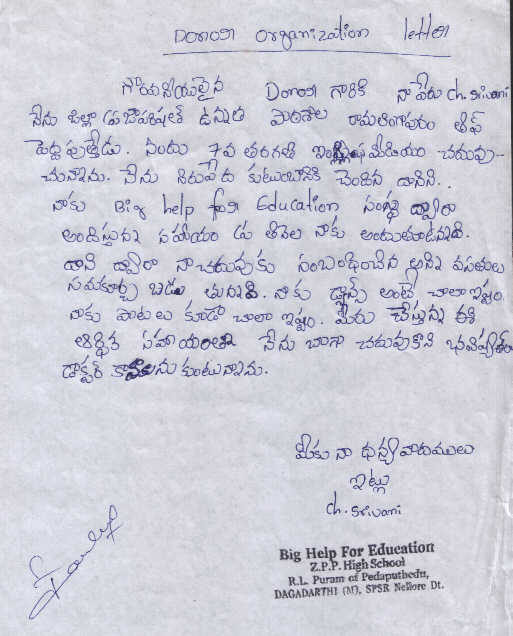 Donor organization letter
గౌరవనీయులైన Donor గారికి నా పేరు ch. Srivani
నేను జిల్లా ప్రజాపరిషత్ ఉన్నత పాఠశాల రామలింగాపురం ఆఫ్
పెద్దపుత్తేడు. నందు 7వ తరగతి ఇంగ్లీషు మీడియం చదువు-
చున్నాను. నేను నిరుపేద కుటుంబానికి చెందిన దానిని..
నాకు Big help for Education సంస్థ ద్వారా
అందిస్తున్న సహాయం ప్రతినెల నాకు అందుతూఉన్నది.
దాని ద్వారా నా చదువుకు సంబంధించిన అన్ని వసతులు
సమకూర్చ బడు తున్నది. నాకు డ్యాన్స్ అంటే చాలా ఇష్టం.
నాకు పాటలు కూడా చాలా ఇష్టం. మీరు చేస్తున్న ఈ
ఆర్థిక సహాయంతో నేను బాగా చదువుకొని భవిష్యత్‌లో
డాక్టర్ కావాలనుకుంటున్నాను.
మీకు నా ధన్యవాదములు
ఇట్లు
ch. Srivani
Big Help For Education
Z.P.P. High School
R.L. Puram of Pedaputhedu,
DAGADARTHI (M), SPSR Nellore Dt.